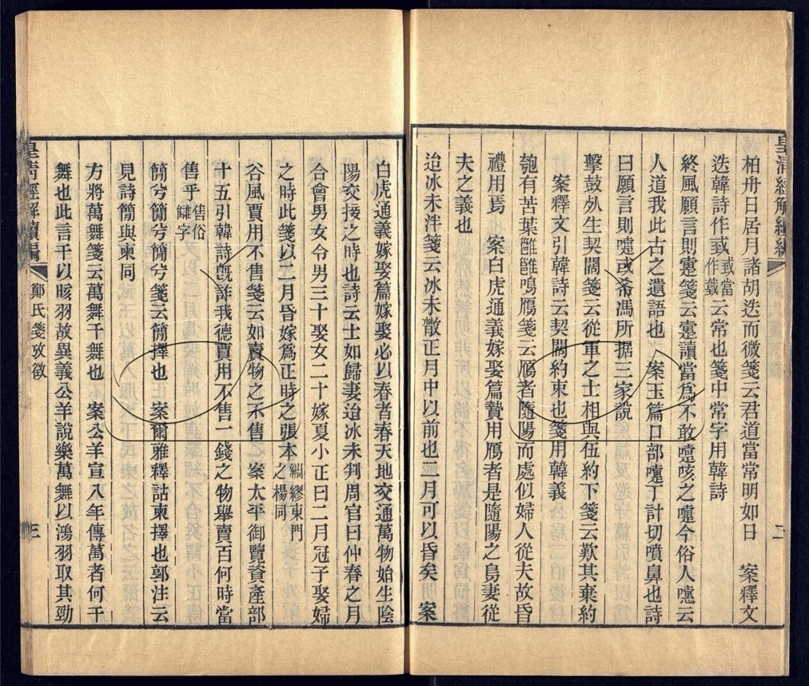 皇清經解續編
二
柏舟日居月諸胡迭而微箋云君道當常明如日　案釋文
迭韓詩作或或當作臷云常也箋中常字用韓詩
終風願言則嚏箋云嚏讀當爲不敢嚏咳之嚏今俗人嚏云
人道我此古之遺語也　案玉篇口部嚏丁計切噴鼻也詩
曰願言則嚏或希馮所据三家說
擊鼓外生契闊箋云從軍之士相與伍約下箋云歎其棄約
案釋文引韓詩云契闊約束也箋用韓義
匏有苦葉雝雝鳴鴈箋云鴈者隨陽而處似婦人從夫故昏
禮用焉　案白虎通義嫁娶篇贄用鴈者是隨陽之鳥妻從
夫之義也
迨冰未泮箋云冰未散正月中以前也二月可以昏矣　案
白虎通義嫁娶篇嫁娶必以春者春天地交通萬物始生陰
陽交接之時也詩云士如歸妻迨冰未判周官曰仲春之月
合會男女令男三十娶女二十嫁夏小正曰二月冠子娶婦
之時此箋以二月昏嫁爲正時之張本綢繆東門之楊同
谷風賈用不售箋云如賣物之不售　案太平御覽資產部
十五引韓詩旣詐我德賈用不售一錢之物舉賣百何時當
售乎售俗讎字
簡兮簡兮簡兮箋云簡擇也　案爾雅釋詁柬擇也郭注云
見詩簡與柬同
方將萬舞箋云萬舞干舞也　案公羊宣八年傳萬者何干
舞也此言干以晐羽故異義公羊說樂萬舞以鴻羽取其勁
皇清經解續編
鄭氏箋攷徵
三